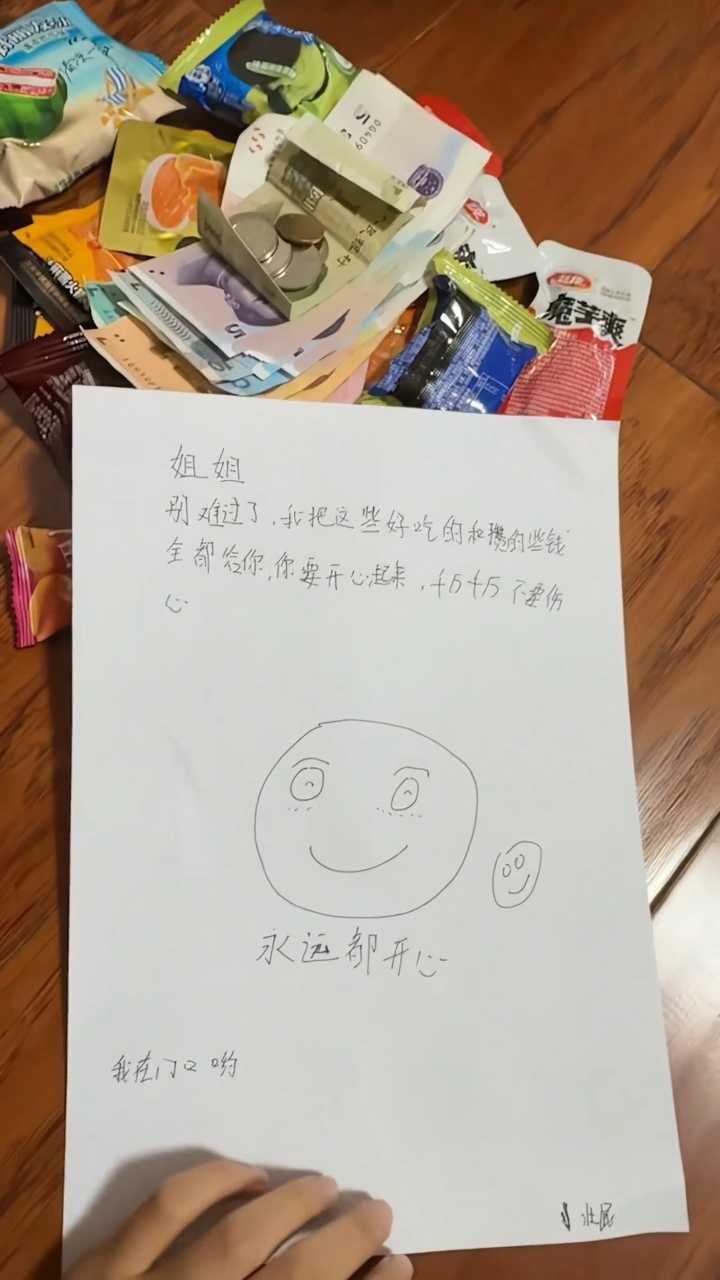 60990
5
魔芋爽
姐姐
别难过了,我把这些好吃的和攒的些钱
全都给你,你要开心起来,千万千万不要伤
心
永远都开心
我在门口哟